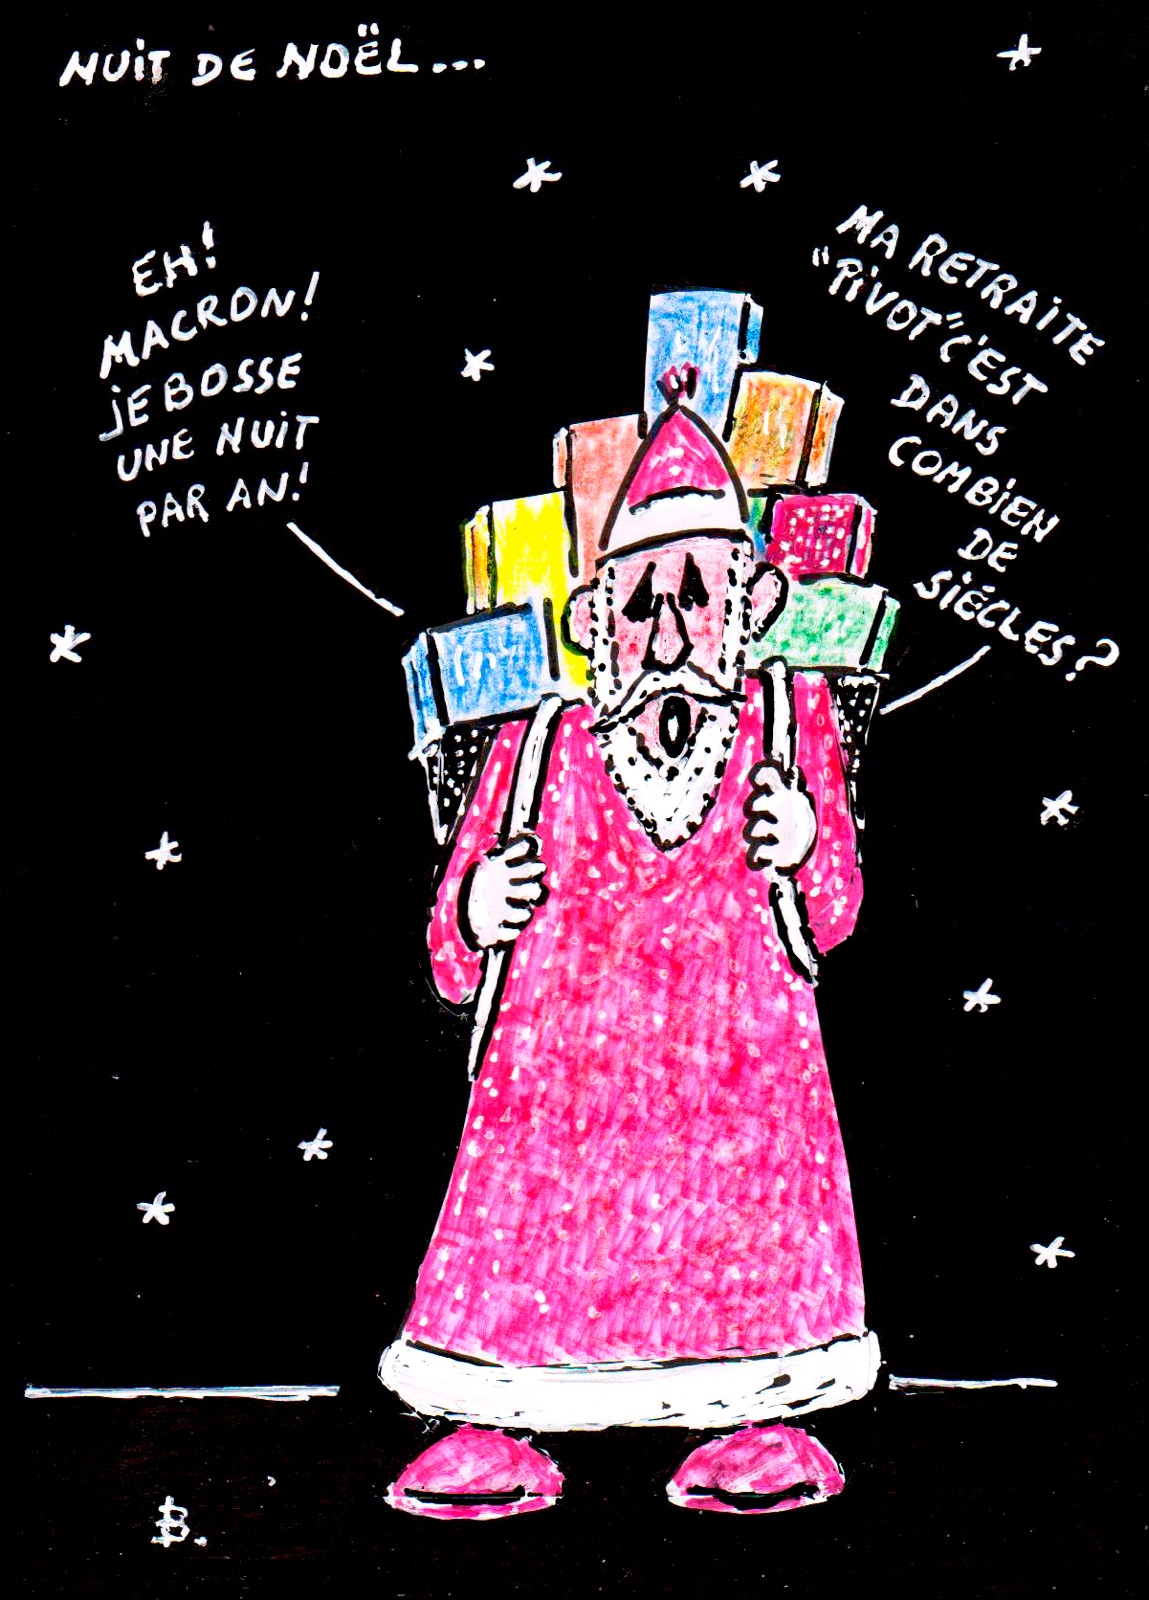 NUiT DE NOËL...
EH!
MACRON!
jE BOSSE
UNE NUiT
PAR AN!
MA RETRAiTE
"PiVOT" C'EST
DANS
COMBiEN
DE
SiÉCLES?
B.